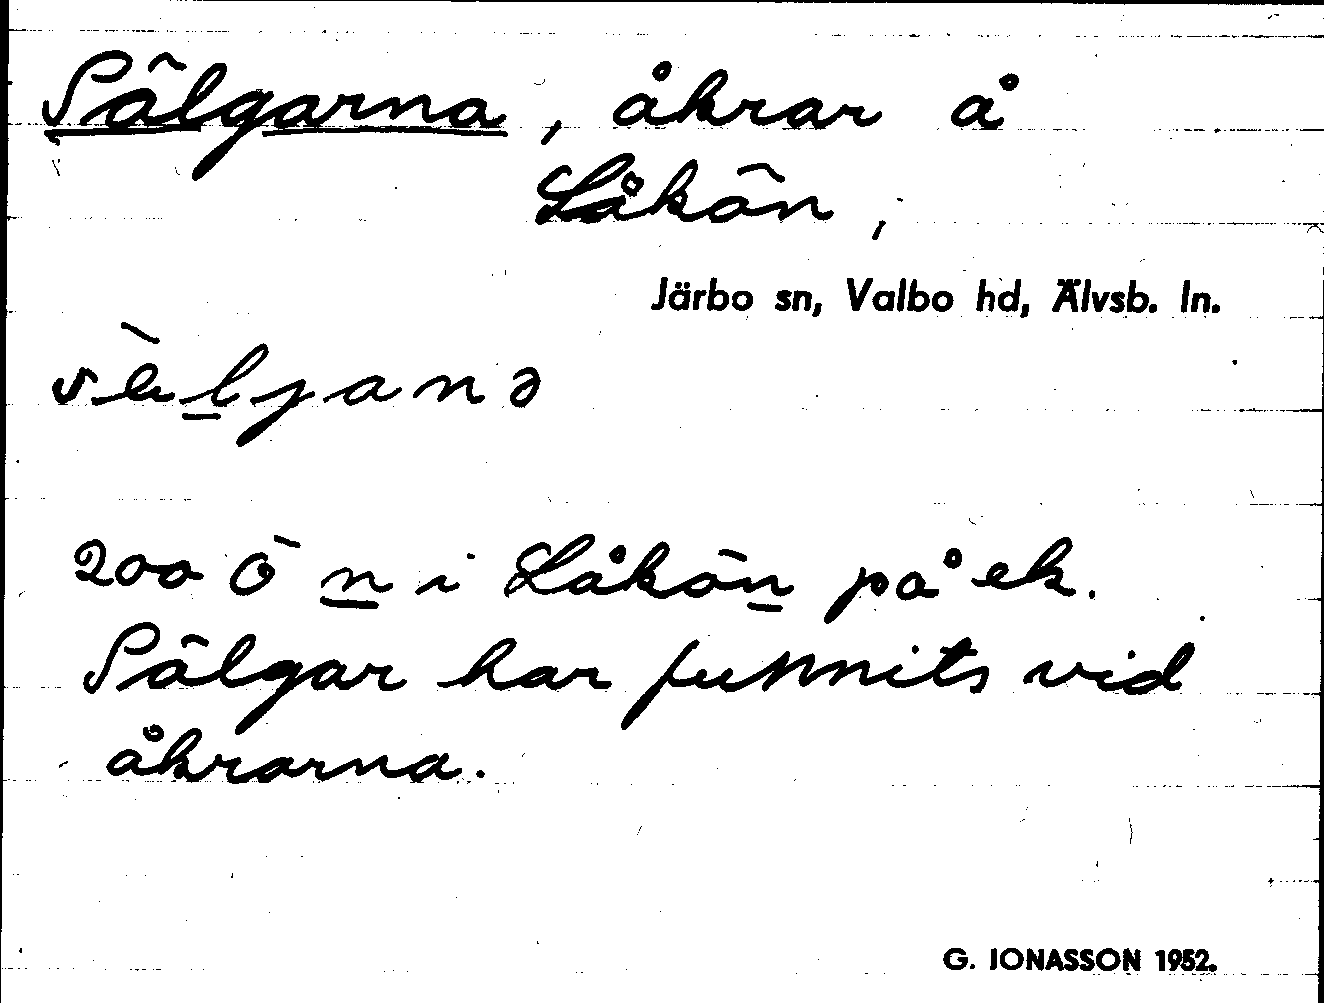 Sälgarna, åkrar å
Låkön,
Järbo sn, Valbo hd, Älvsb. ln.
sæ̀ljanə
200 Ö n i Låkön på ek.
Sälgar har funnits vid
åkrarna.
G. JONASSON 1952.